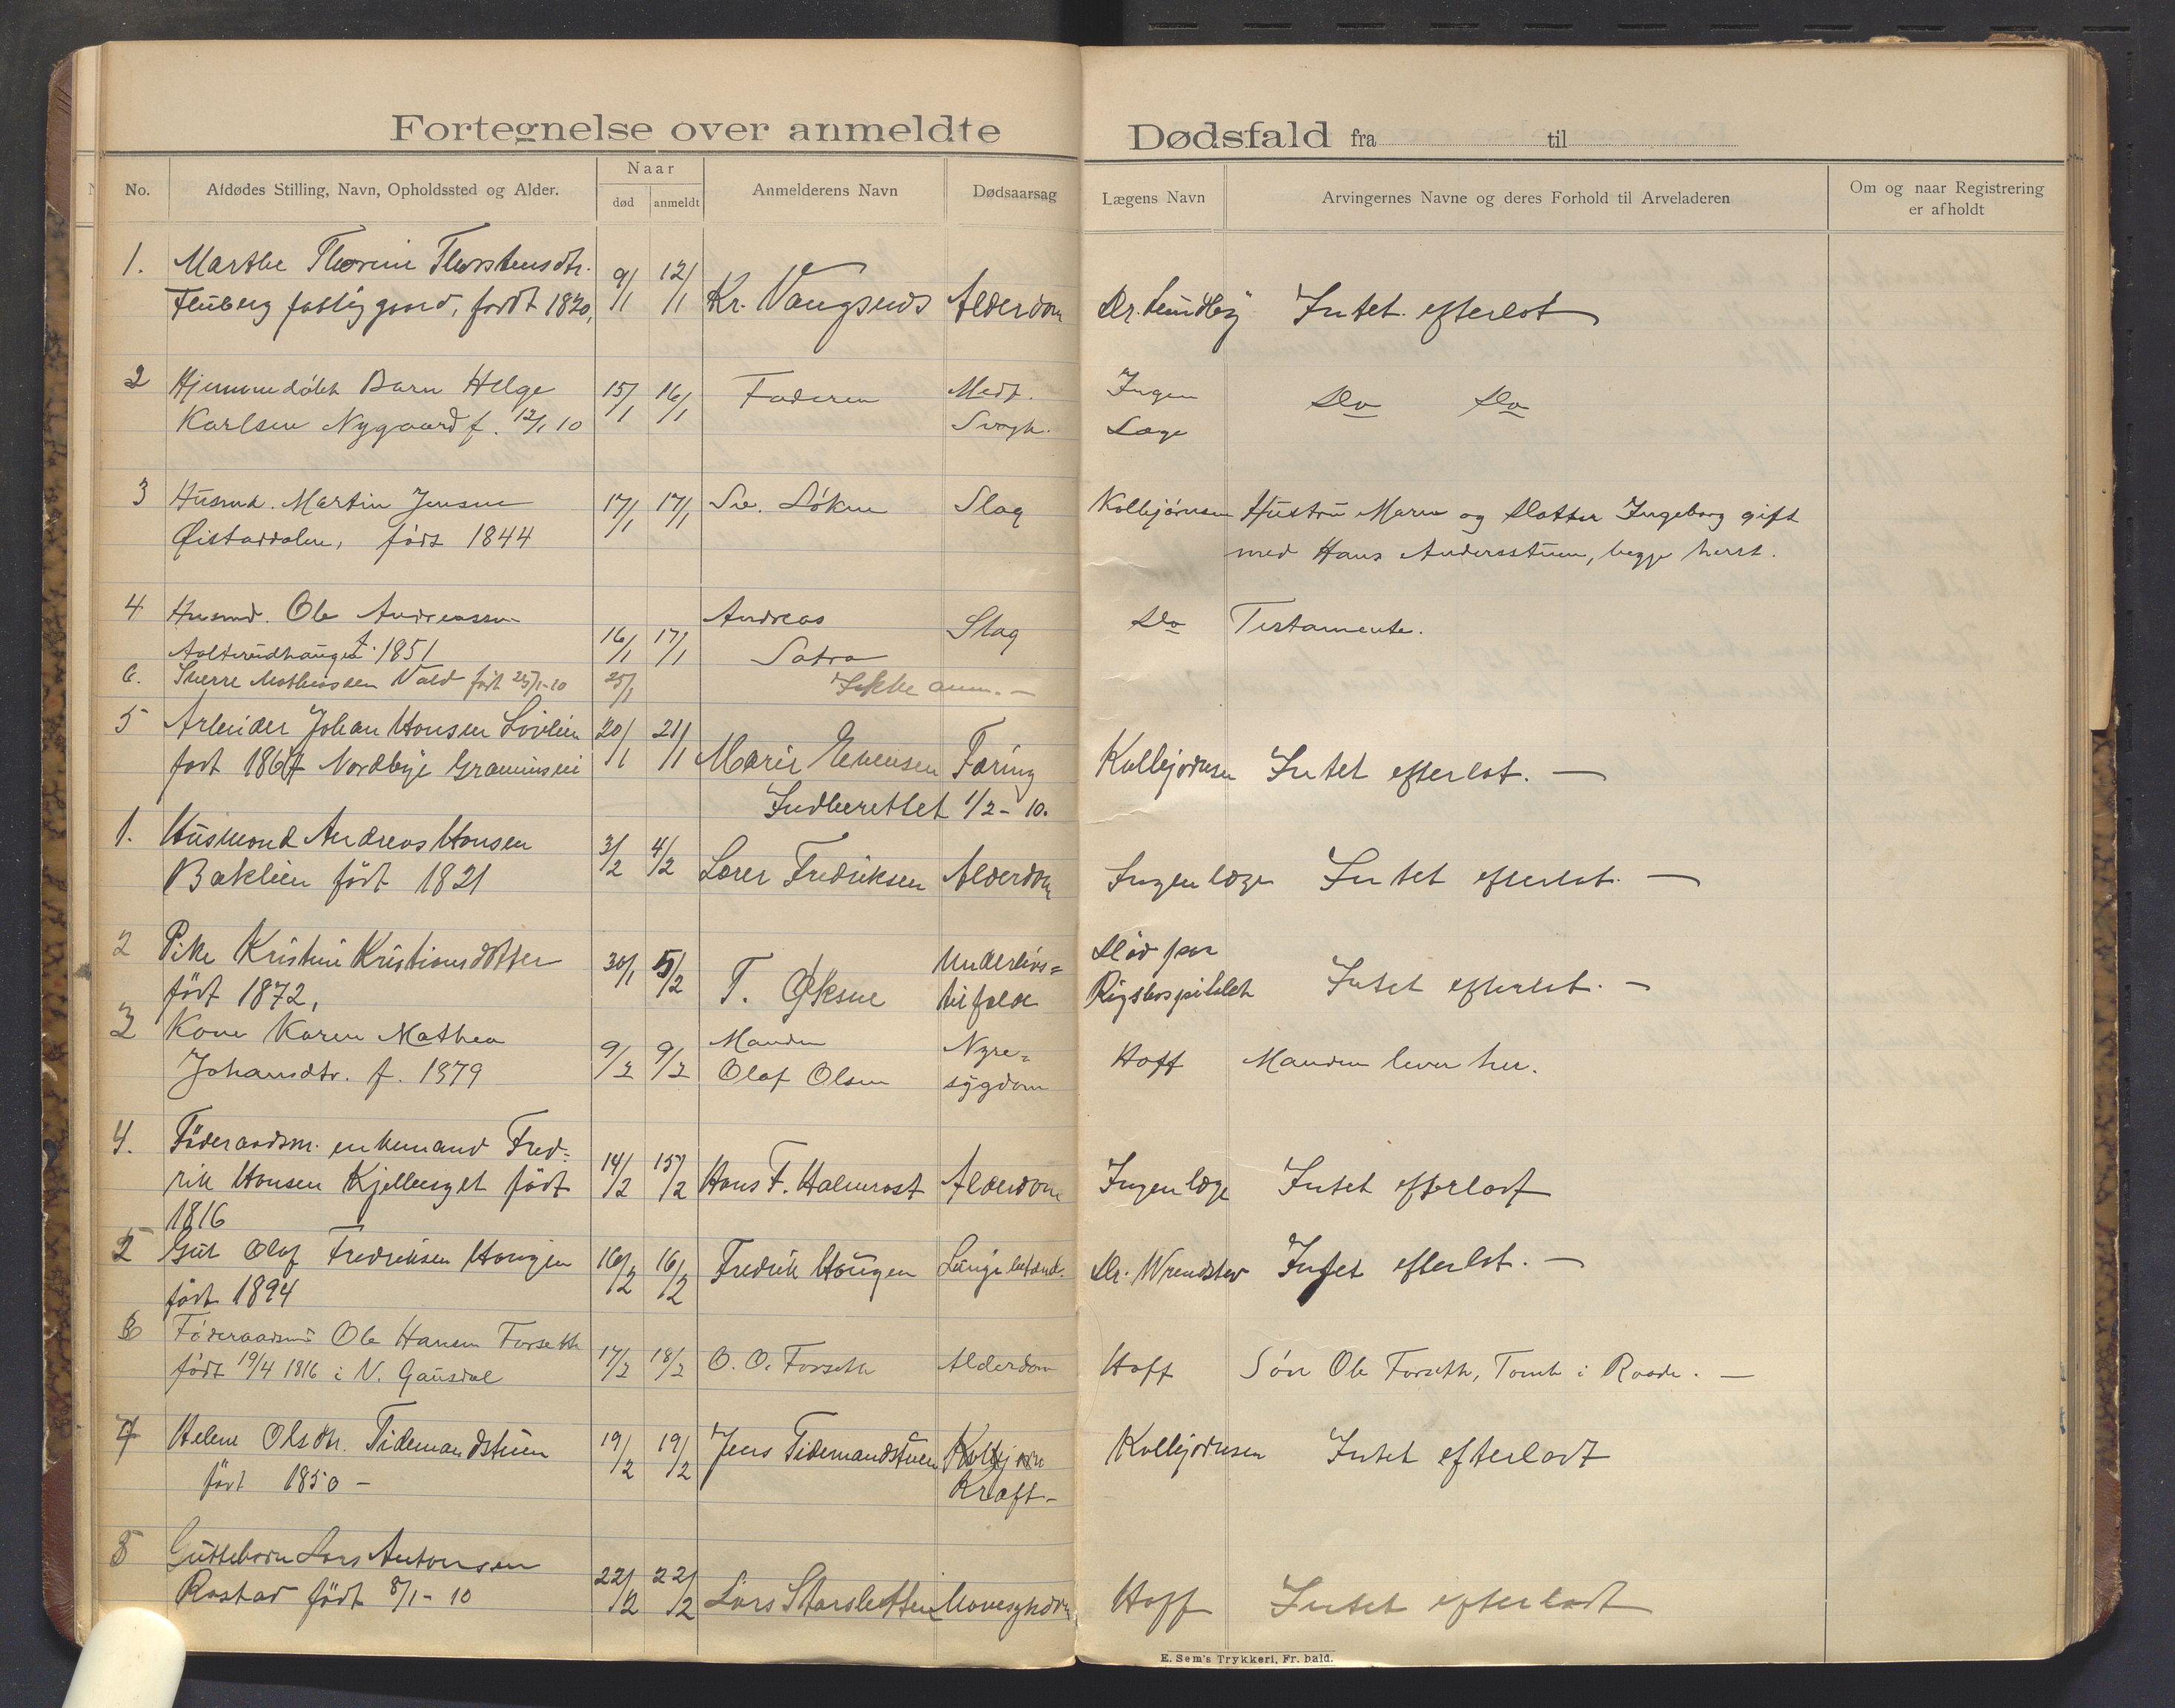 Fortegnelse over anmeldte Dødsfald fra til
No. Afdødes Stilling, Navn, Opholdssted og Alder. Naar død anmeldt Anmelderens Navn Dødsaarsag Lægens Navn Arvingernes Navne og deres Forhold til Arveladeren Om og naar Registrering er afholdt
1. Marthe Thorine Thorstensdtr.
Fluberg fattiggaard, født 1820, 9/1 12/1 Kr. Vangsnes Alderdom Dr. Lundby Intet efterlot
2 Hjemmedøbt Barn Helge 15/1 16/1 Faderen Medf. Ingen Do Do
Karlsen Nygaard f. 12/1 10 Svagh. Læge
3 Husmd. Martin Jensen 17/1 17/1 Sv. Løken Slag Kolbjørnsen Hustru Maren og Datter Ingeborg gift
født 1844 med Hans Andersstuen, begge herst.
4 Husmd. Ole Andreassen Andreas Slag Do Testamente.
f. 1851 16/1 17/1 Satra
6. Sverre Mathiassen Vold født 25/1-10 25/1 Ikke anm. —
5 Arbeider Johan Hansen Lövlien 20/1 21/1
født 1867 Nordbye Marie Evensen Tæring Kolbjørnsen Intet efterlot. —
Indberettet 1/2 - 10.
1. Husmand Andreas Hansen 3/2 4/2
Baklien født 1821 Lærer Fredriksen Alderdom Ingen læge Intet efterlot. —
2 Pike Kristine Kristiansdatter 30/1 5/2 Underlivs= Död paa
født 1872, T. Øksne tilfælde Rigshospitalet Intet efterlot. —
3 Kone Karen Mathea 9/2 9/2 Manden Nyre= Hoff Manden lever her.
Johansdtr. f. 1879 Olaf Olsen sygdom
4. Föderaadsm. enkemand Fred=
rik Hansen født 14/2 15/2 Hans F. Halmrast Alderdom Ingen læge Intet efterladt
1816
5 Gut Olaf Fredriksen Haugen 16/2 16/2 Fredrik Haugen Lungebetænd. Intet efterlot. —
født 1894
6 Föderaadsm. Ole Hansen Forseth
født 19/4 1816 i N. Gausdal 17/2 18/2 O. O. Forseth Alderdom Hoff Søn Ole Forseth, Tomb i Raade. —
7 Helene Olsdtr. Tidemandstuen 19/2 19/2 Jens Tidemandstuen Kolbjørn Kolbjørnsen Intet efterladt
født 1850 — Kræft—
8 Guttebarn Lars Antonsen
Rastad født 8/1 - 10 22/2 22/2 Lars Mavesygdom Hoff Intet efterladt
E. Sem's Trykkeri, Fr. hald.